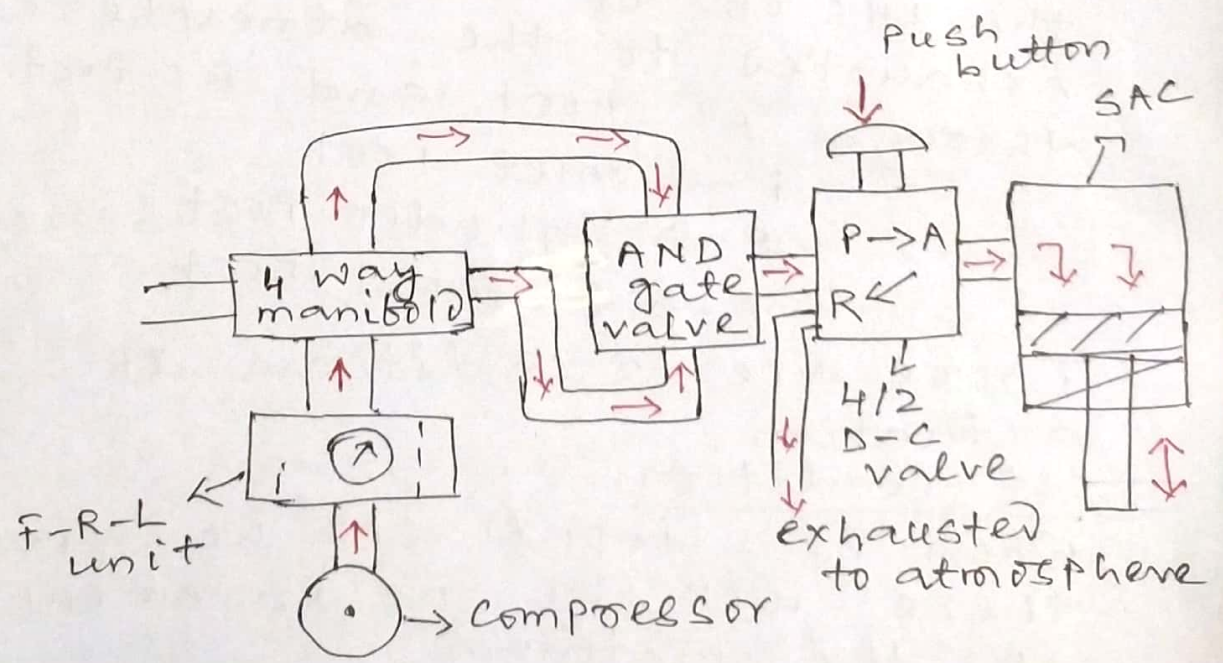 Push
button
SAC
4 way
manifold
AND
gate
valve
P→A
R↙
4/2
D-C
valve
F-R-L
unit
exhausted
to atmosphere
compressor